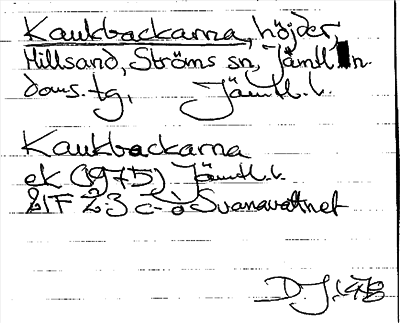 Kaukbackarna, höjder,
Hillsand, Ströms sn, Jämtl. n.
doms. tg, Jämtl. l.
Kaukbackarna
ek (1975) Jämtl. l.
21F 23 c-d Svanavattnet
D.J. 1978